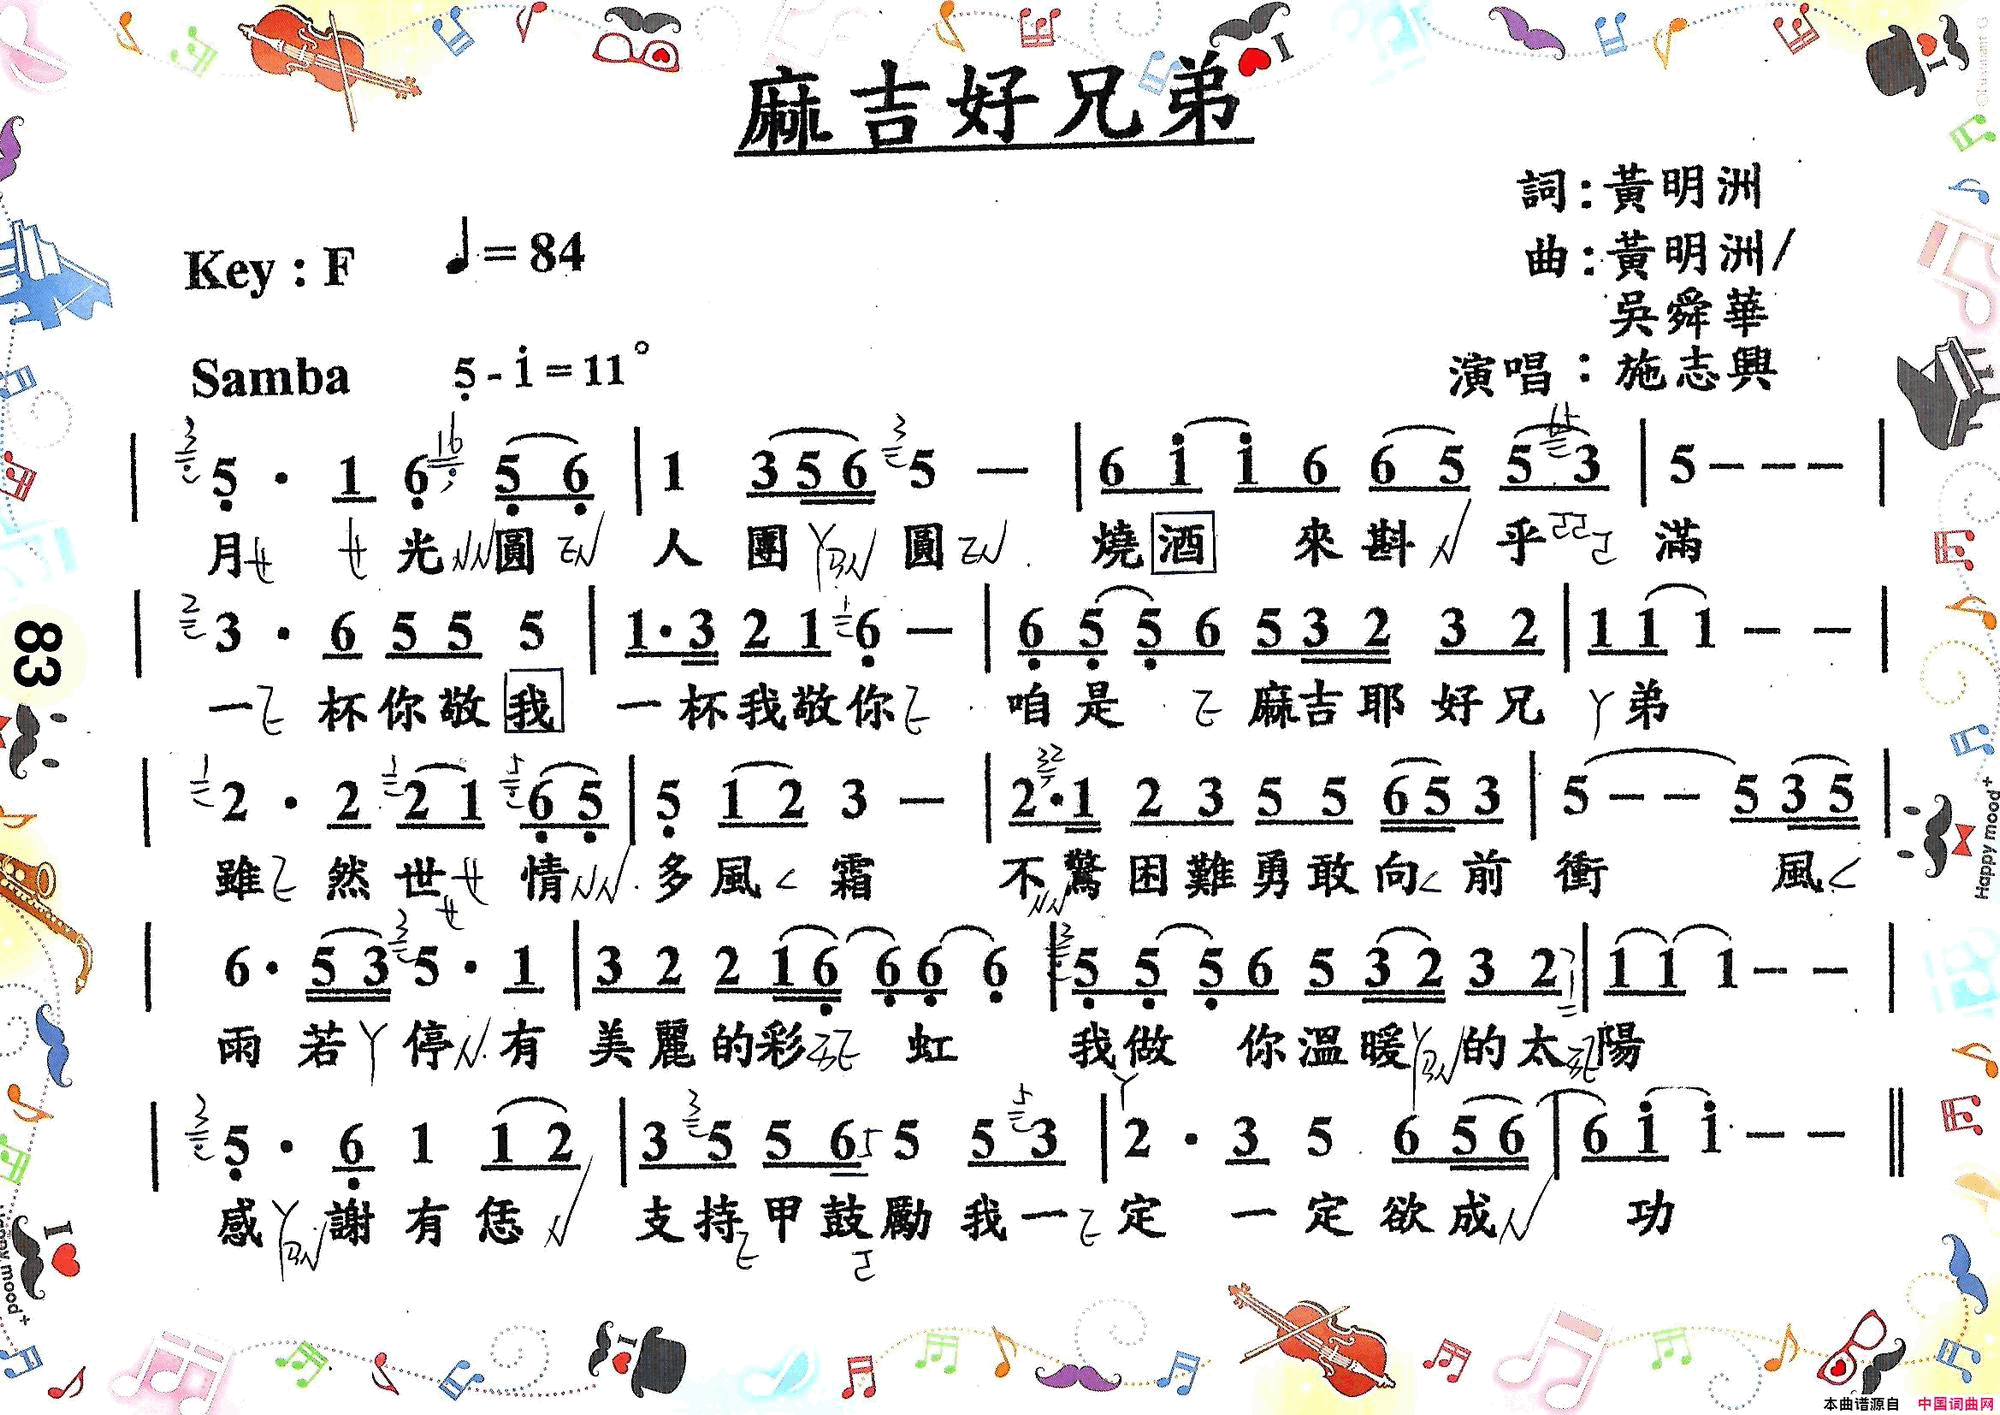 麻吉好兄弟
詞:黃明洲
Key : F ♩= 84
曲:黃明洲/
吳舜華
Samba 5 - i = 11°
演唱:施志興
| 5 · 1 6 5 6 | 1 3 5 6 5 — | 6 i i 6 6 5 5 3 | 5 — — — |
月 光 圓 人 團 圓 燒 酒 來 斟 乎 滿
| 3 · 6 5 5 5 | 1 · 3 2 1 6 — | 6 5 5 6 5 3 2 3 2 | 1 1 1 — — |
一 杯 你 敬 我 一 杯 我 敬 你 咱 是 麻 吉 耶 好 兄 弟
| 2 · 2 2 1 6 5 | 5 1 2 3 — | 2 · 1 2 3 5 5 6 5 3 | 5 — — 5 3 5 |
雖 然 世 情 多 風 霜 不 驚 困 難 勇 敢 向 前 衝 風
| 6 · 5 3 5 · 1 | 3 2 2 1 6 6 6 6 | 5 5 5 6 5 3 2 3 2 | 1 1 1 — — |
雨 若 停 有 美 麗 的 彩 虹 我 做 你 溫 暖 的 太 陽
| 5 · 6 1 1 2 | 3 5 5 6 5 5 3 | 2 · 3 5 6 5 6 | 6 i i — — ||
感 謝 有 恁 支 持 甲 鼓 勵 我 一 定 一 定 欲 成 功
83
Happy mood+
I
I
I
I
Happy mood+
本曲谱源自 中国词曲网